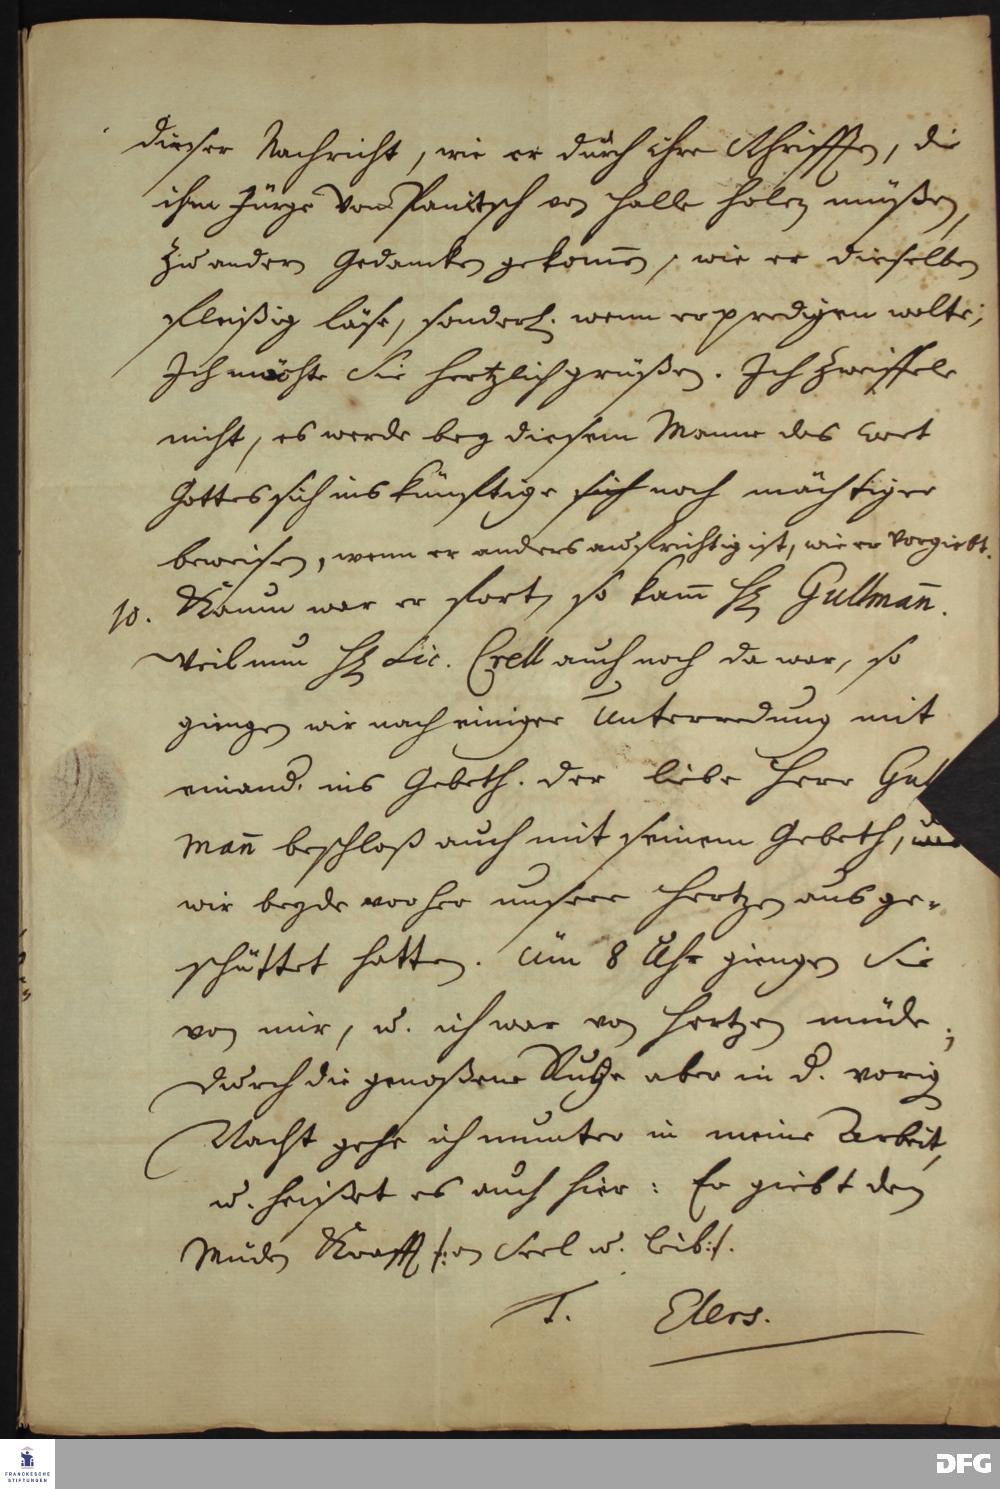 dieser Nachricht, wie er durch ihre Schrifften, die
ihm Jürge von Panitsch von Halle holen müßen,
zu andern Gedancken gekom̅en, wie er dieselben
fleißig läse, sonderl. wenn er predigen wolte;
Ich möchte Sie hertzlich grüßen. Ich zweiffele
nicht, es werde bey diesem Manne das Wort
Gottes sich ins künfftige sich noch mächtiger
beweisen, wenn er anders aufrichtig ist, wie er vorgiebt.
10. Kaum war er fort, so kam̅ H. Gullman̅.
Weil nun H. Lic. Crell auch noch da war, so
gingen wir nach einiger Unterredung mit
einand. ins Gebeth. Der liebe Herr Gull
man̅ beschloß auch mit seinem Gebeth,
wir beyde vorher unsere Hertzen ausge-
schüttet hatten. Um 8 Uhr giengen Sie
von mir, u. ich war von Hertzen müde;
durch die genoßene Ruhe aber in d. vorig
Nacht gehe ich munter in meine Arbeit,
u. heißet es auch hier: Er giebt den
Müden Krafft /:an Seel u. Leib:/.
T. Elers.
FRANCKESCHE
STIFTUNGEN
DFG